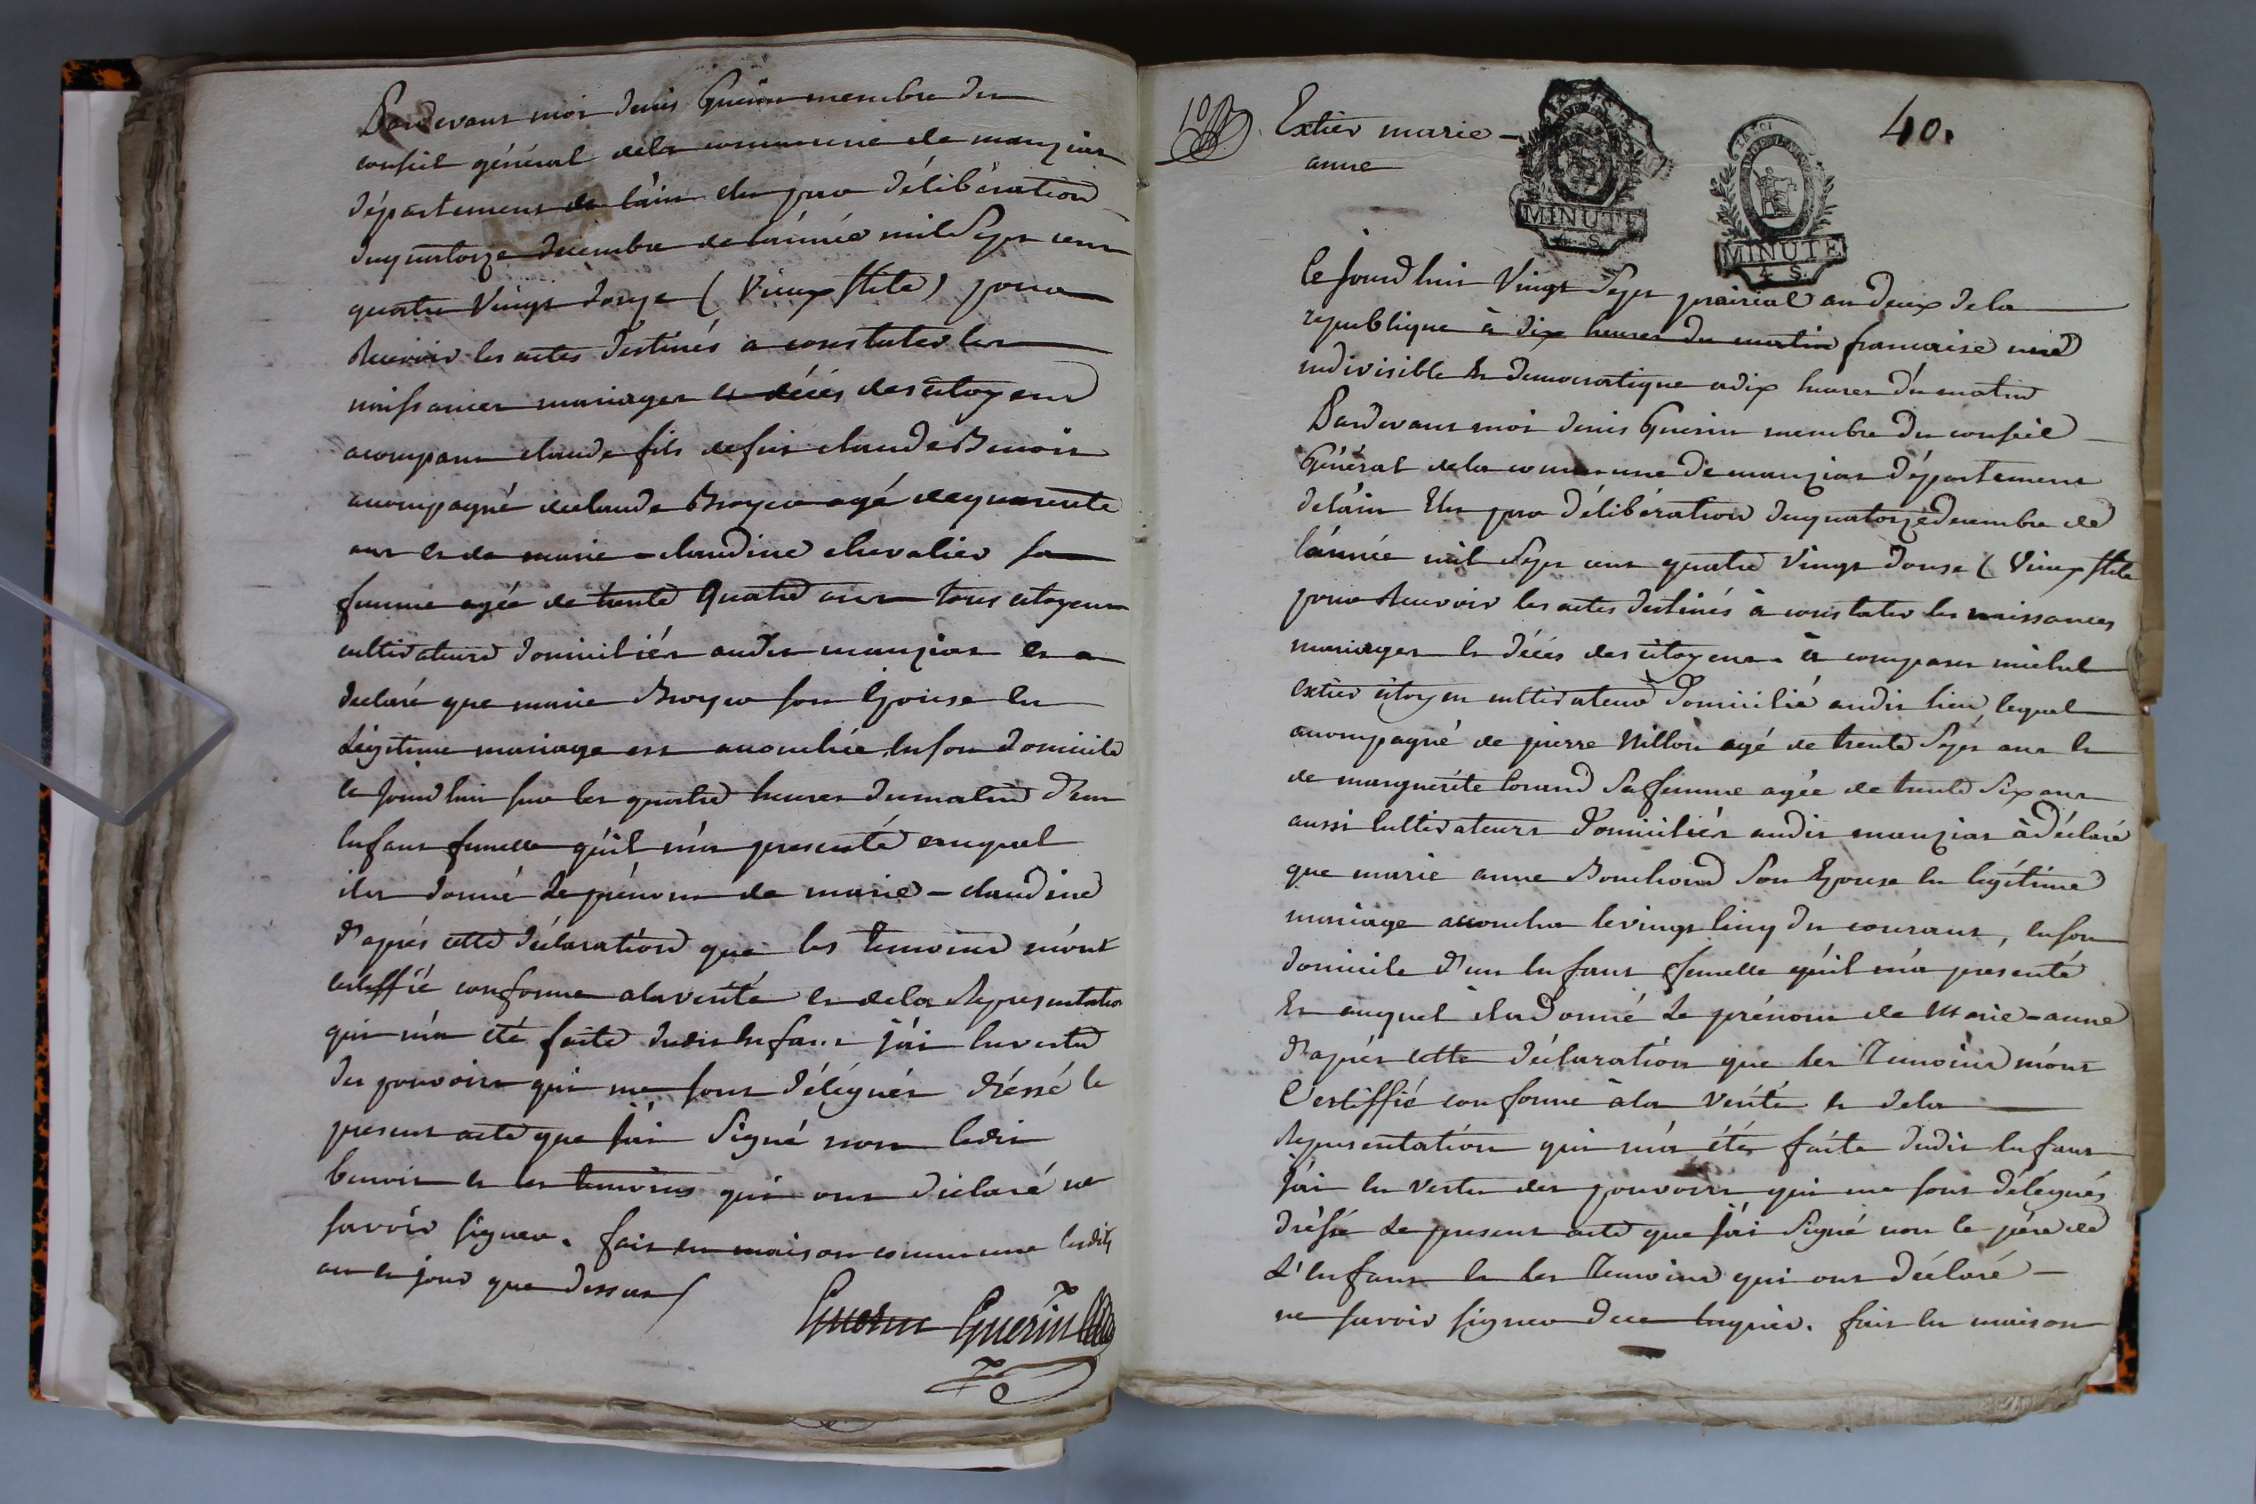 Pardevant moi denis Guerin membre du
conseil général dela commune de manziat
département de l'ain élu par délibération
du quatorze decembre de l'année mil sept cent
quatre vingt douze (vieux stile) pour
recevoir les actes destinés a constater les
naissances mariages et décés des citoyens
acomparu claude fils de feu claude Benoit
acompagné de claude Broyer agé de quarante
ans et de marie-claudine chevalier sa
femme agée de trente quatre ans tous citoyens
cultivateurs domiciliés audit manziat et a
declaré que marie Broyer son Epouse en
légitime mariage est acouchée en son domicile
ce jourd'hui sur les quatre heures du matin d'un
enfant femelle qu'il m'a presenté auquel
il a donné le prénom de marie-claudine
d'aprés cette déclaration que les temoins m'ont
certiffié conforme a la verité et de la representation
qui m'a été faite dudit enfant j'ai en vertu
des pouvoirs qui me sont délégués dréssé le
present acte que j'ai signé non ledit
benoit et les temoins qui ont déclaré ne
savoir signer. fait en maison commune lesdits
an et jour que dessus
Guerin Guerin
10
Extier marie-
anne
40.
MINUTE
4. S.
LA LOI
MINUTE
4. S.
Ce jourd'hui vingt sept prairial an deux de la
republique à dix heures du matin francaise une
indivisible et democratique a dix heures du matin
Pardevant moi denis Guerin membre du conseil
Général de la commune de manziat département
de l'ain Elu par délibération du quatorze decembre de
l'année mil sept cent quatre vingt douse (vieux stile
pour recevoir les actes destinés à constater les naissances
mariages et décés des citoyens. a comparu michel
extier citoyen cultivateur domicilié audit lieu, lequel
acompagné de pierre Nillon agé de trente sept ans et
de marguerite Corand sa femme agée de trente six ans
aussi cultivateurs domiciliés audit manziat à déclaré
que marie anne Bouchard son Epouse en legitime
mariage acoucha le vingt cinq du courant, en son
domicile d'un enfant femelle qu'il m'a presenté
et auquel il a donné le prénom de Marie-anne
d'aprés cette déclaration que les Temoins m'ont
Certiffié conforme à la vérité et de la
representation qui m'a été faite dudit enfant
j'ai en vertu des pouvoirs qui me sont délegués
dréssé le present acte que j'ai signé non le pére de
L'enfant et les Temoins qui ont déclaré
ne savoir signer de ce enquis. fait en maison